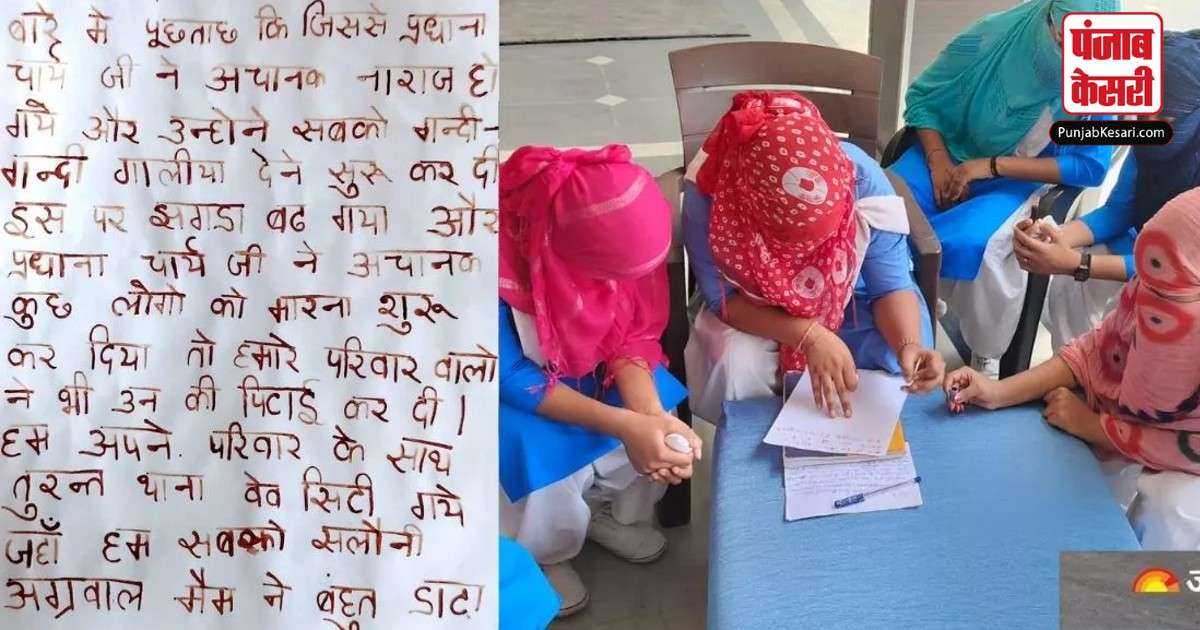 बारे मे पूछताछ कि जिससे प्रधाना
चार्य जी ने अचानक नाराज हो
गये और उन्होने सबको गन्दी-
गन्दी गालीया देने सुरू कर दी
इस पर झगडा बढ गया और
प्रधाना चार्य जी ने अचानक
कुछ लोगो को मारना शुरू
कर दिया तो हमारे परिवार वालो
ने भी उन की पिटाई कर दी।
हम अपने परिवार के साथ
तुरन्त थाना वेव सिटी गये
जहाँ हम सबको सलौनी
अग्रवाल मैम ने बंहुत डाटा
पंजाब
केसरी
PunjabKesari.com